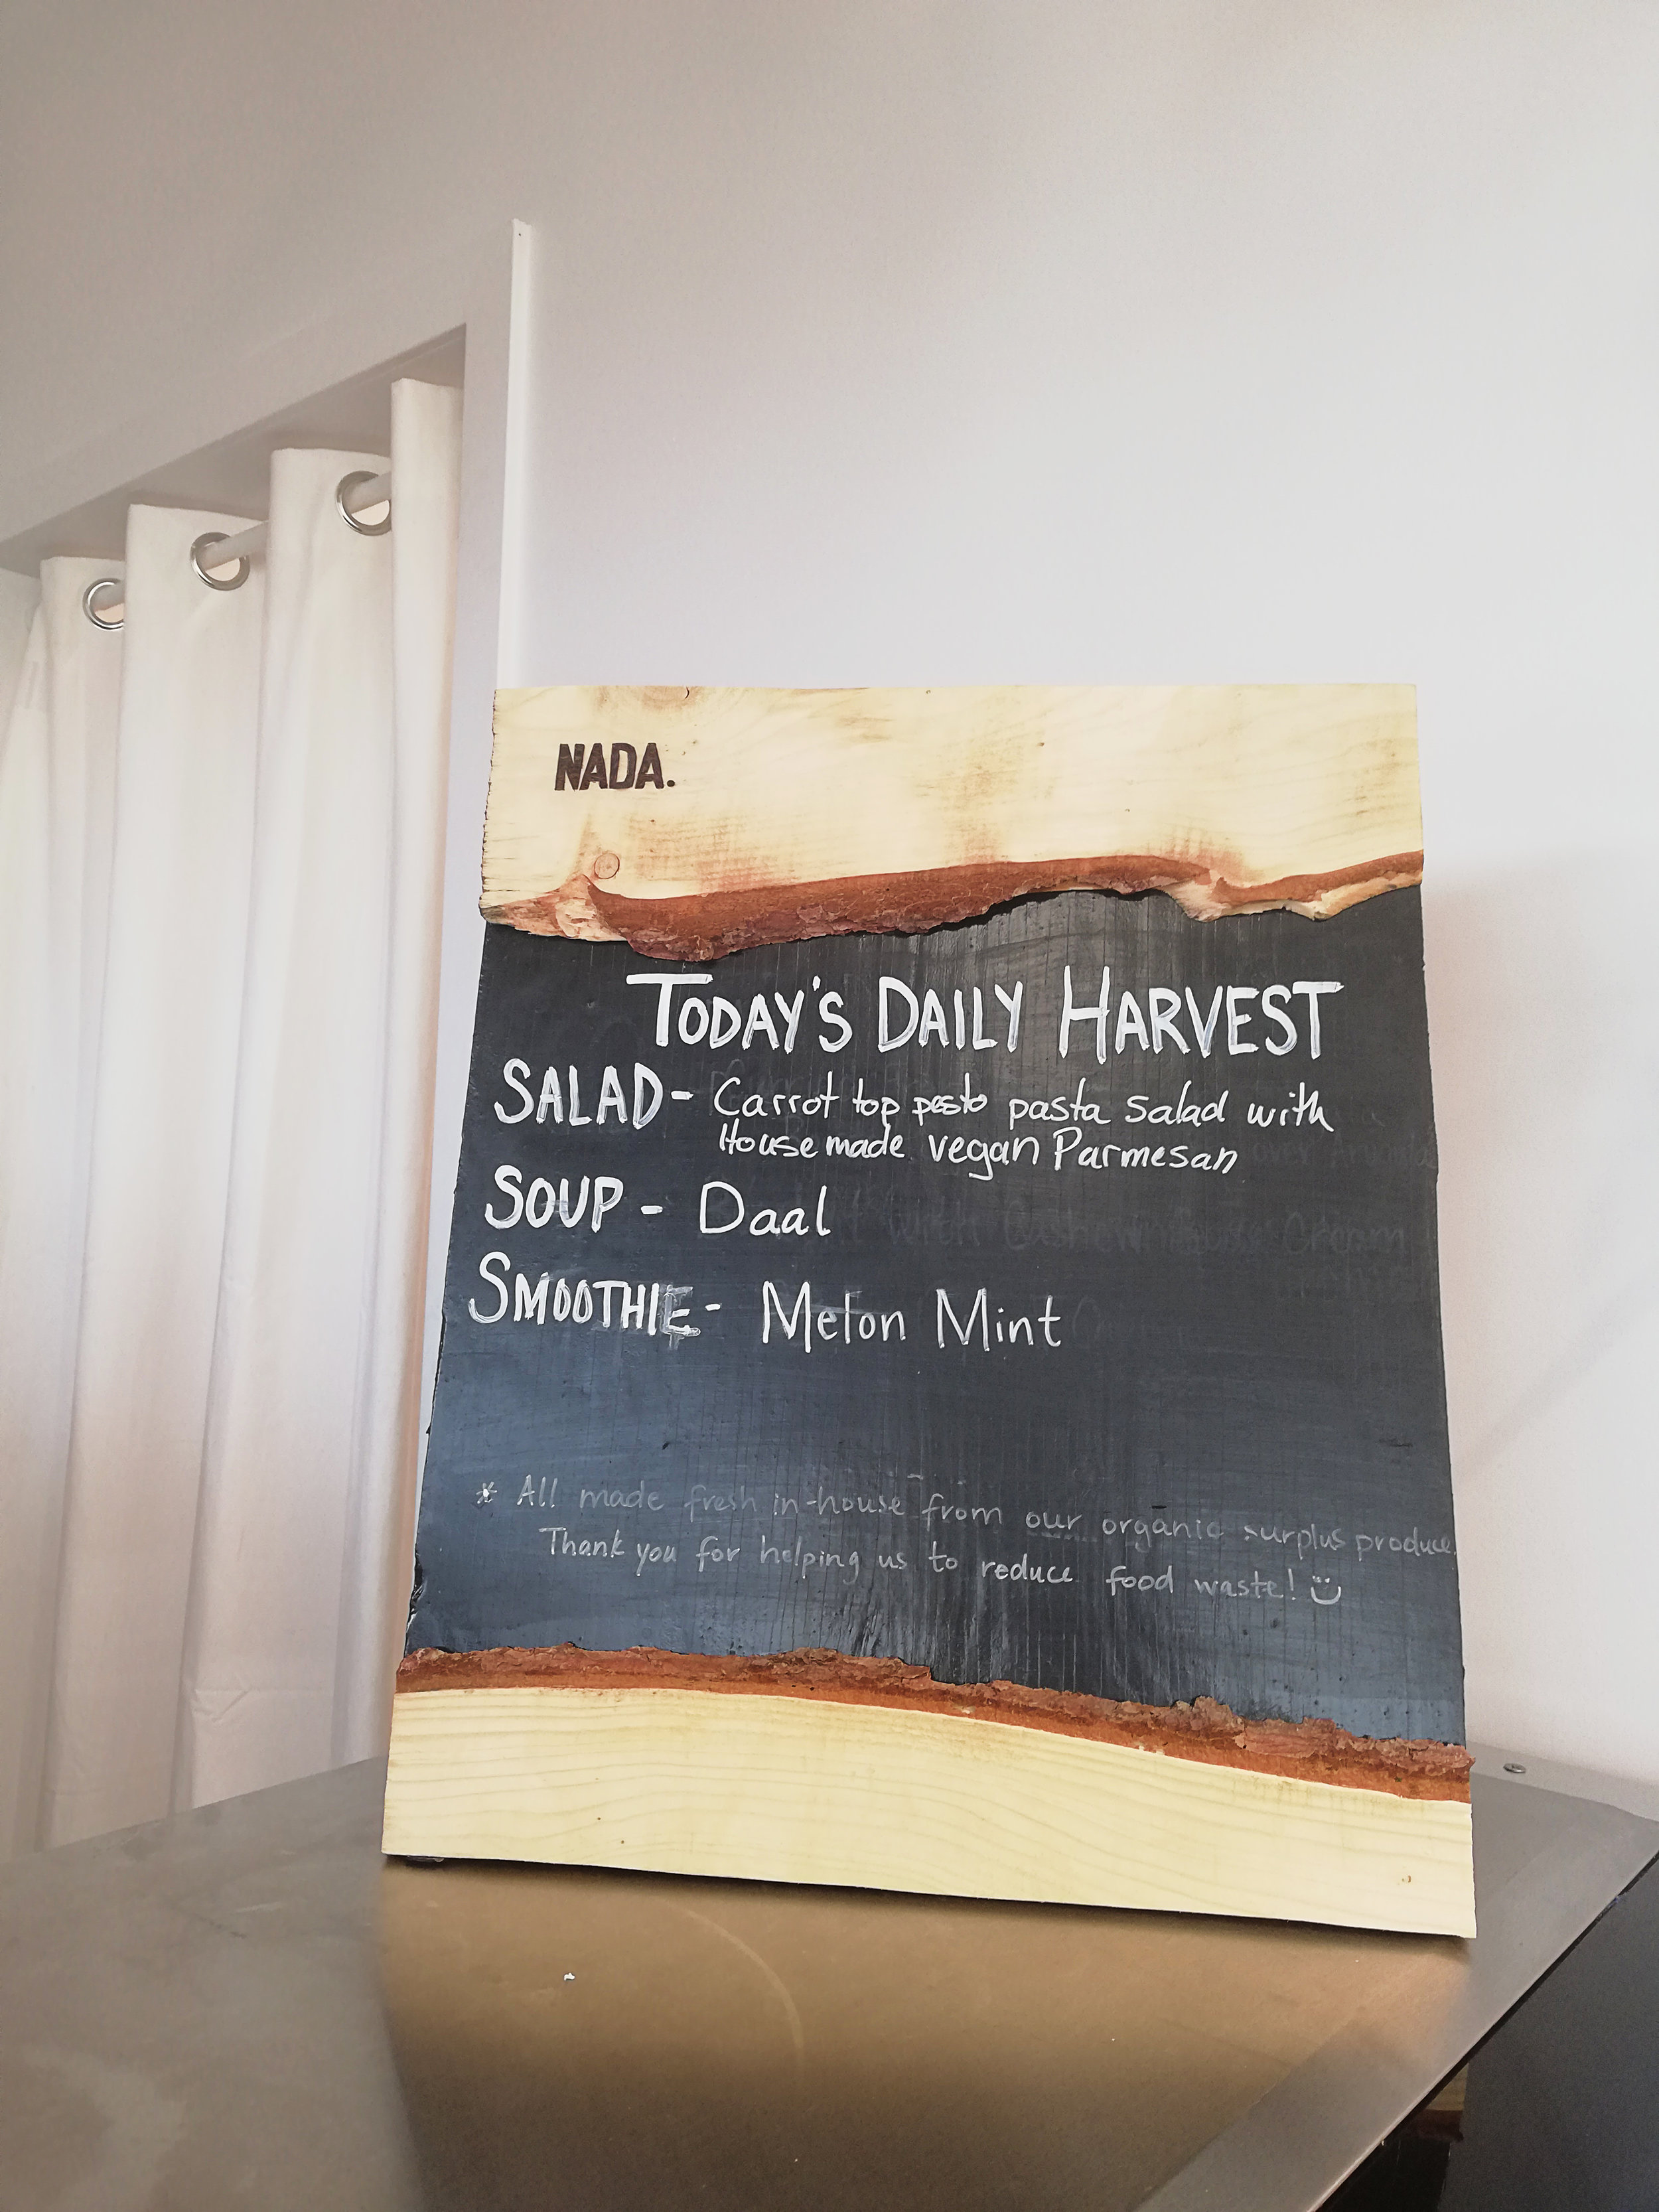 NADA.
TODAY'S DAILY HARVEST
SALAD- Carrot top pesto pasta salad with
House made vegan Parmesan
SOUP - Daal
SMOOTHIE- Melon Mint
* All made fresh in-house from our organic surplus produce.
Thank you for helping us to reduce food waste!